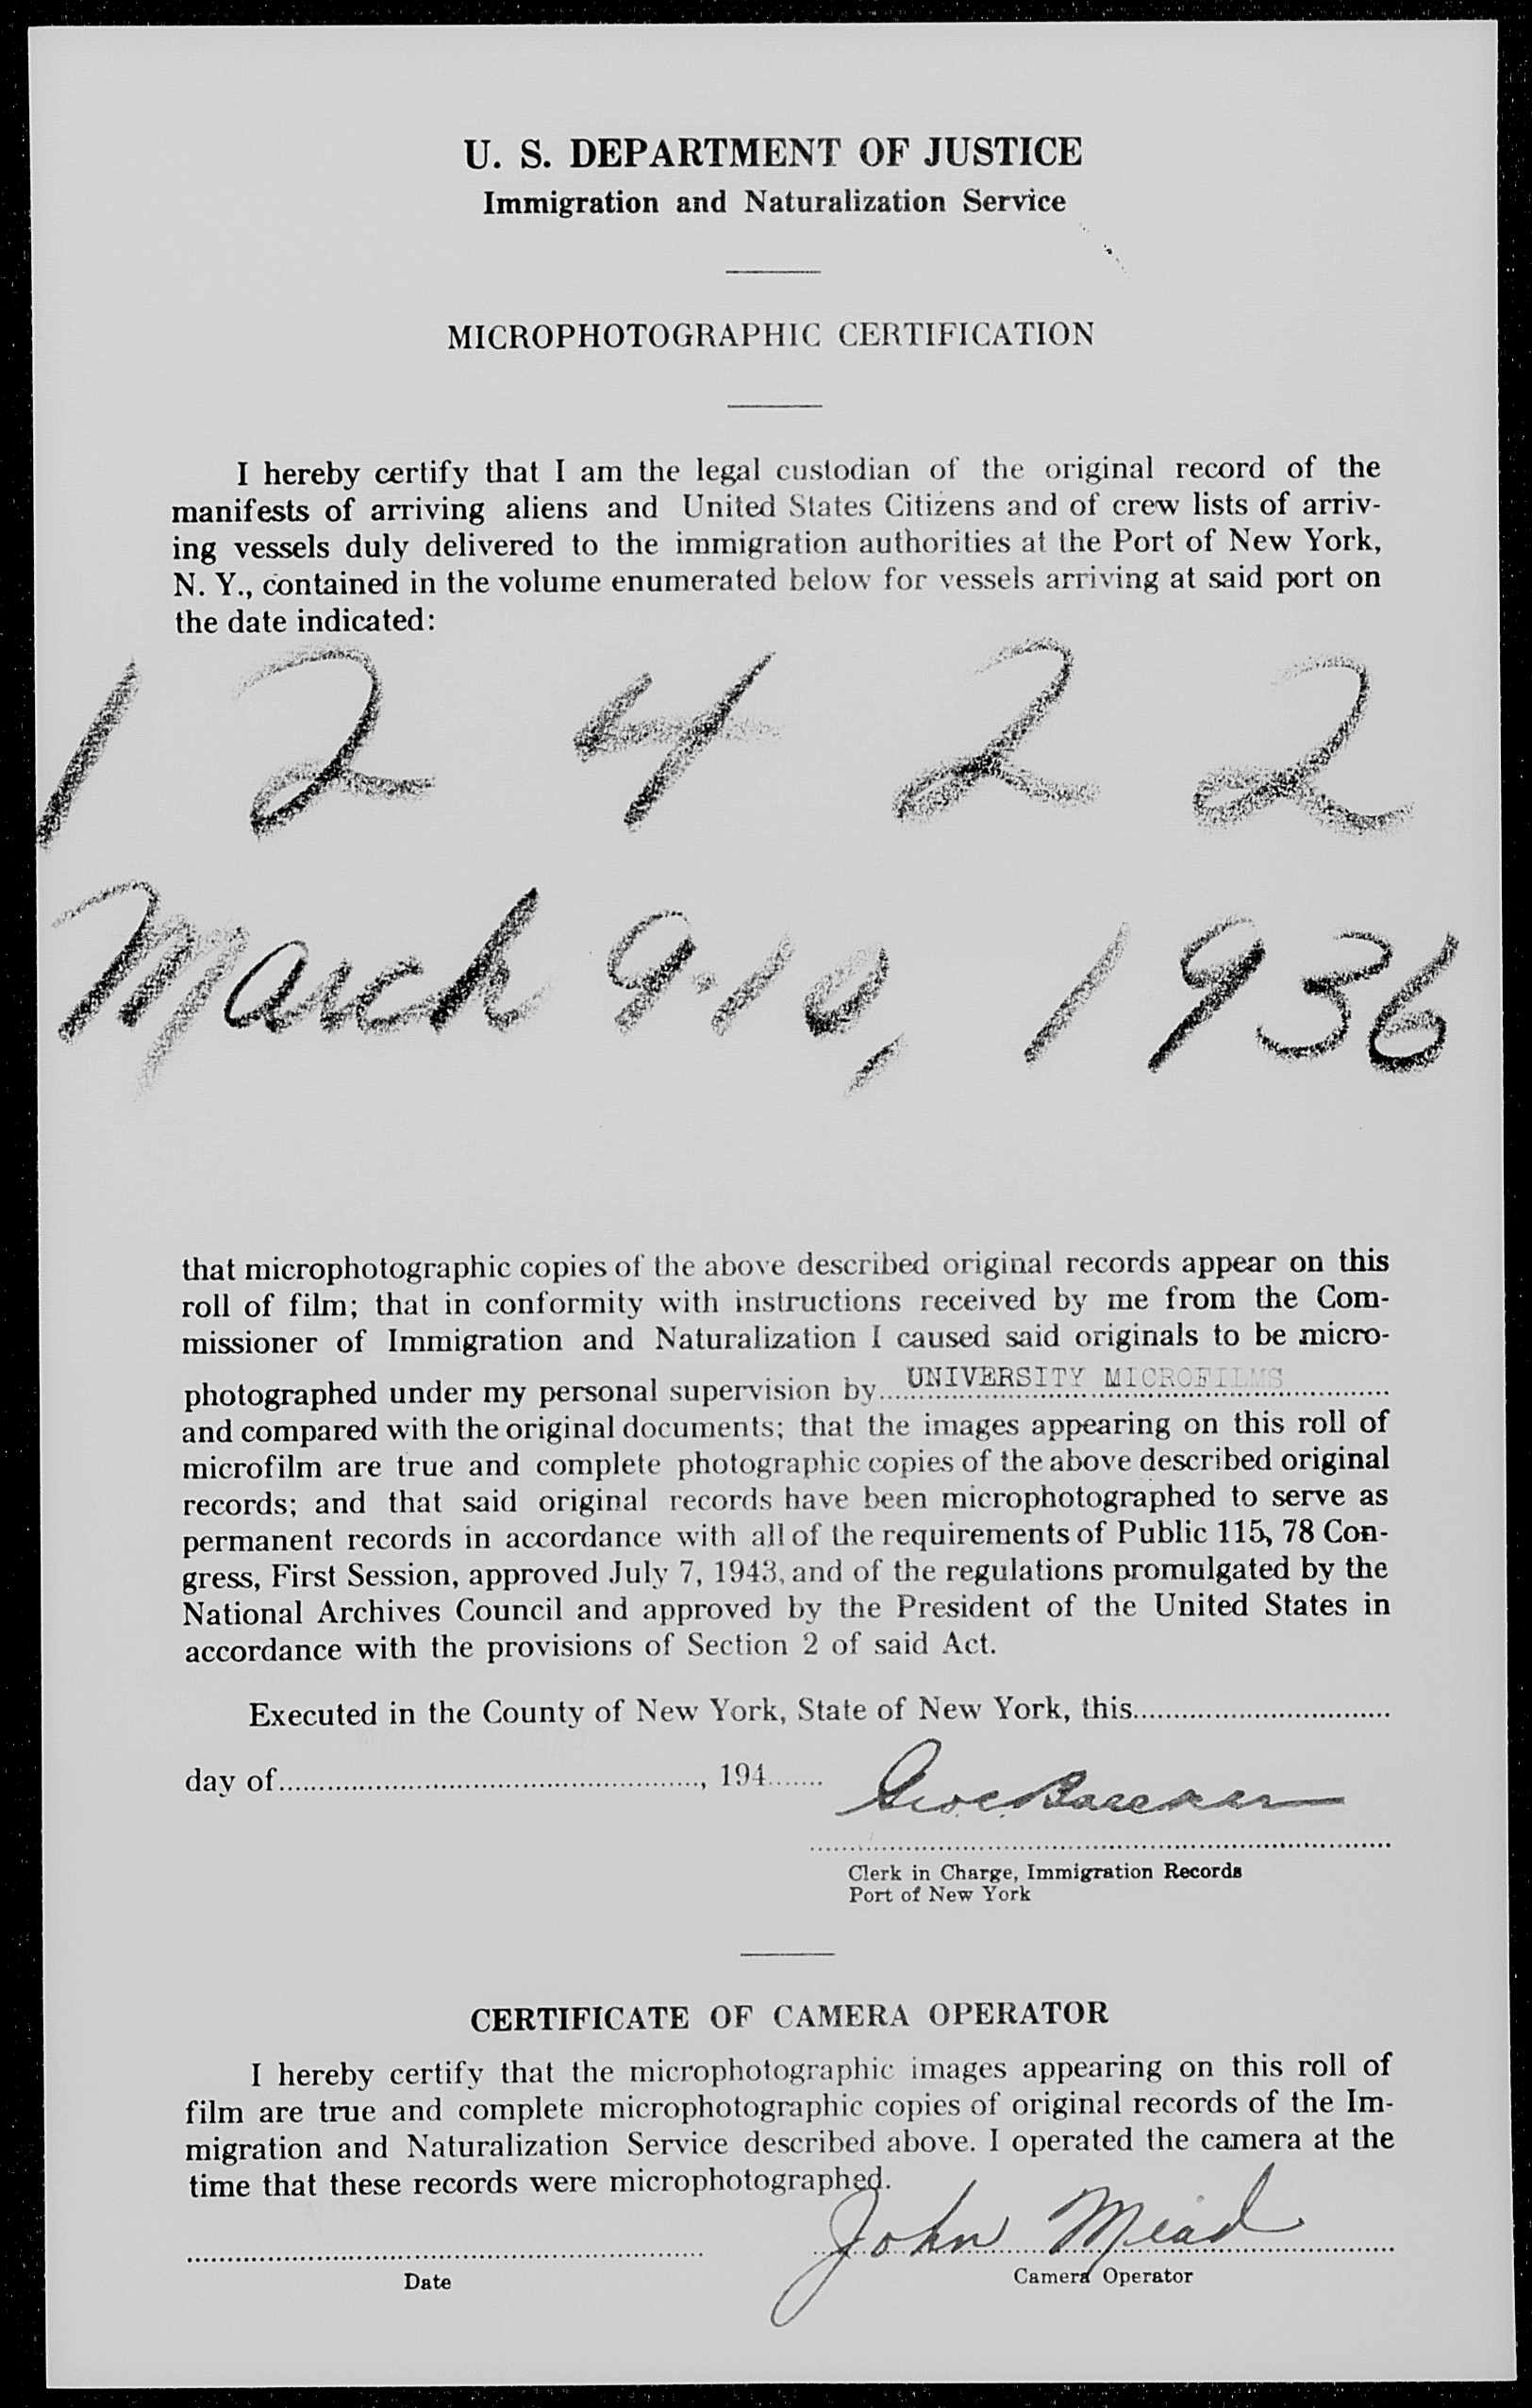 U. S. DEPARTMENT OF JUSTICE
Immigration and Naturalization Service
MICROPHOTOGRAPHIC CERTIFICATION
I hereby certify that I am the legal custodian of the original record of the
manifests of arriving aliens and United States Citizens and of crew lists of arriv-
ing vessels duly delivered to the immigration authorities at the Port of New York,
N. Y., contained in the volume enumerated below for vessels arriving at said port on
the date indicated:
1 2 4 2 2
March 9-10, 1936
that microphotographic copies of the above described original records appear on this
roll of film; that in conformity with instructions received by me from the Com-
missioner of Immigration and Naturalization I caused said originals to be micro-
photographed under my personal supervision by UNIVERSITY MICROFILMS
and compared with the original documents; that the images appearing on this roll of
microfilm are true and complete photographic copies of the above described original
records; and that said original records have been microphotographed to serve as
permanent records in accordance with all of the requirements of Public 115, 78 Con-
gress, First Session, approved July 7, 1943, and of the regulations promulgated by the
National Archives Council and approved by the President of the United States in
accordance with the provisions of Section 2 of said Act.
Executed in the County of New York, State of New York, this
day of , 194
Clerk in Charge, Immigration Records
Port of New York
CERTIFICATE OF CAMERA OPERATOR
I hereby certify that the microphotographic images appearing on this roll of
film are true and complete microphotographic copies of original records of the Im-
migration and Naturalization Service described above. I operated the camera at the
time that these records were microphotographed.
John Mead
Date
Camera Operator